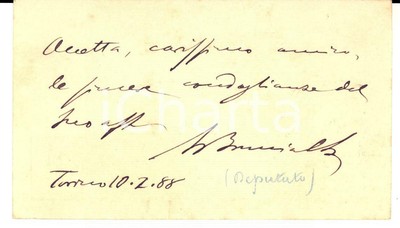 Accetta, carissimo amico,
le sincere condoglianze del
tuo aff.
Brunialti
Torino 10.2.88 (Deputato)
iCharta